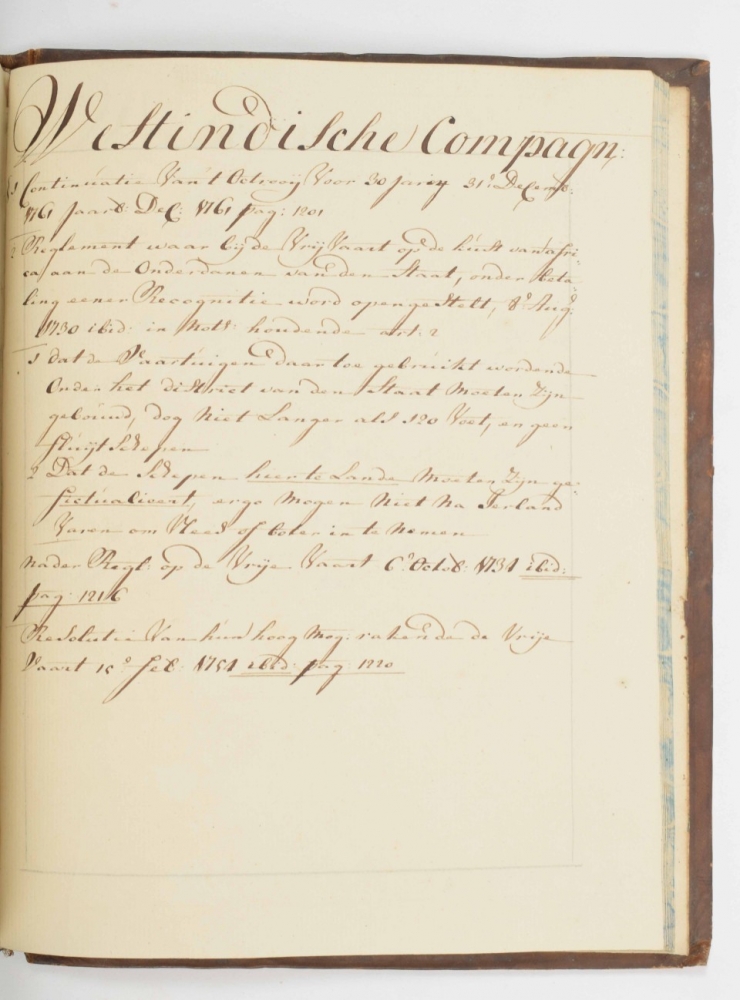 Westindische Compagn:
1 Continuatie Van't Octrooij Voor 30 Jaren 31: Decemb:
1761 Jaarb: Dec: 1761 pag: 1201
2 Reglement waar bij de Vrij Vaart op de kust van afri
ca aan de Onderdanen van den Staat, onder beta
ling eener Recognitie word opengestelt, 8:o Aug:
1730 ibid: in Not: houdende art: 2
1 dat de Vaartuigen daar toe gebruikt wordende
Onder het district van den Staat Moeten Zijn
gebouwd, dog Niet Langer als 120 Voet, en geen
fluijt Schepen
2 Dat de Schepen hier te Lande Moeten Zijn ge
fictualieert, ergo Mogen Niet Na Ierland
Varen om Vlees of boter in te Nemen
Nader Regl: op de Vrije Vaart 6:o Octob: 1734 ibid:
pag: 1216
Resolutie Van hun hoog Mog: rakende de Vrije
Vaart 15:o feb: 1751 ibid: pag 1220